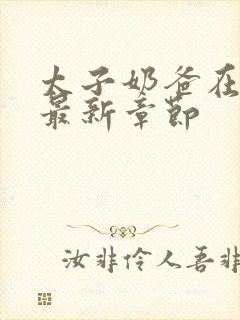 太子奶爸在
最新章节
汝非伶人吾非